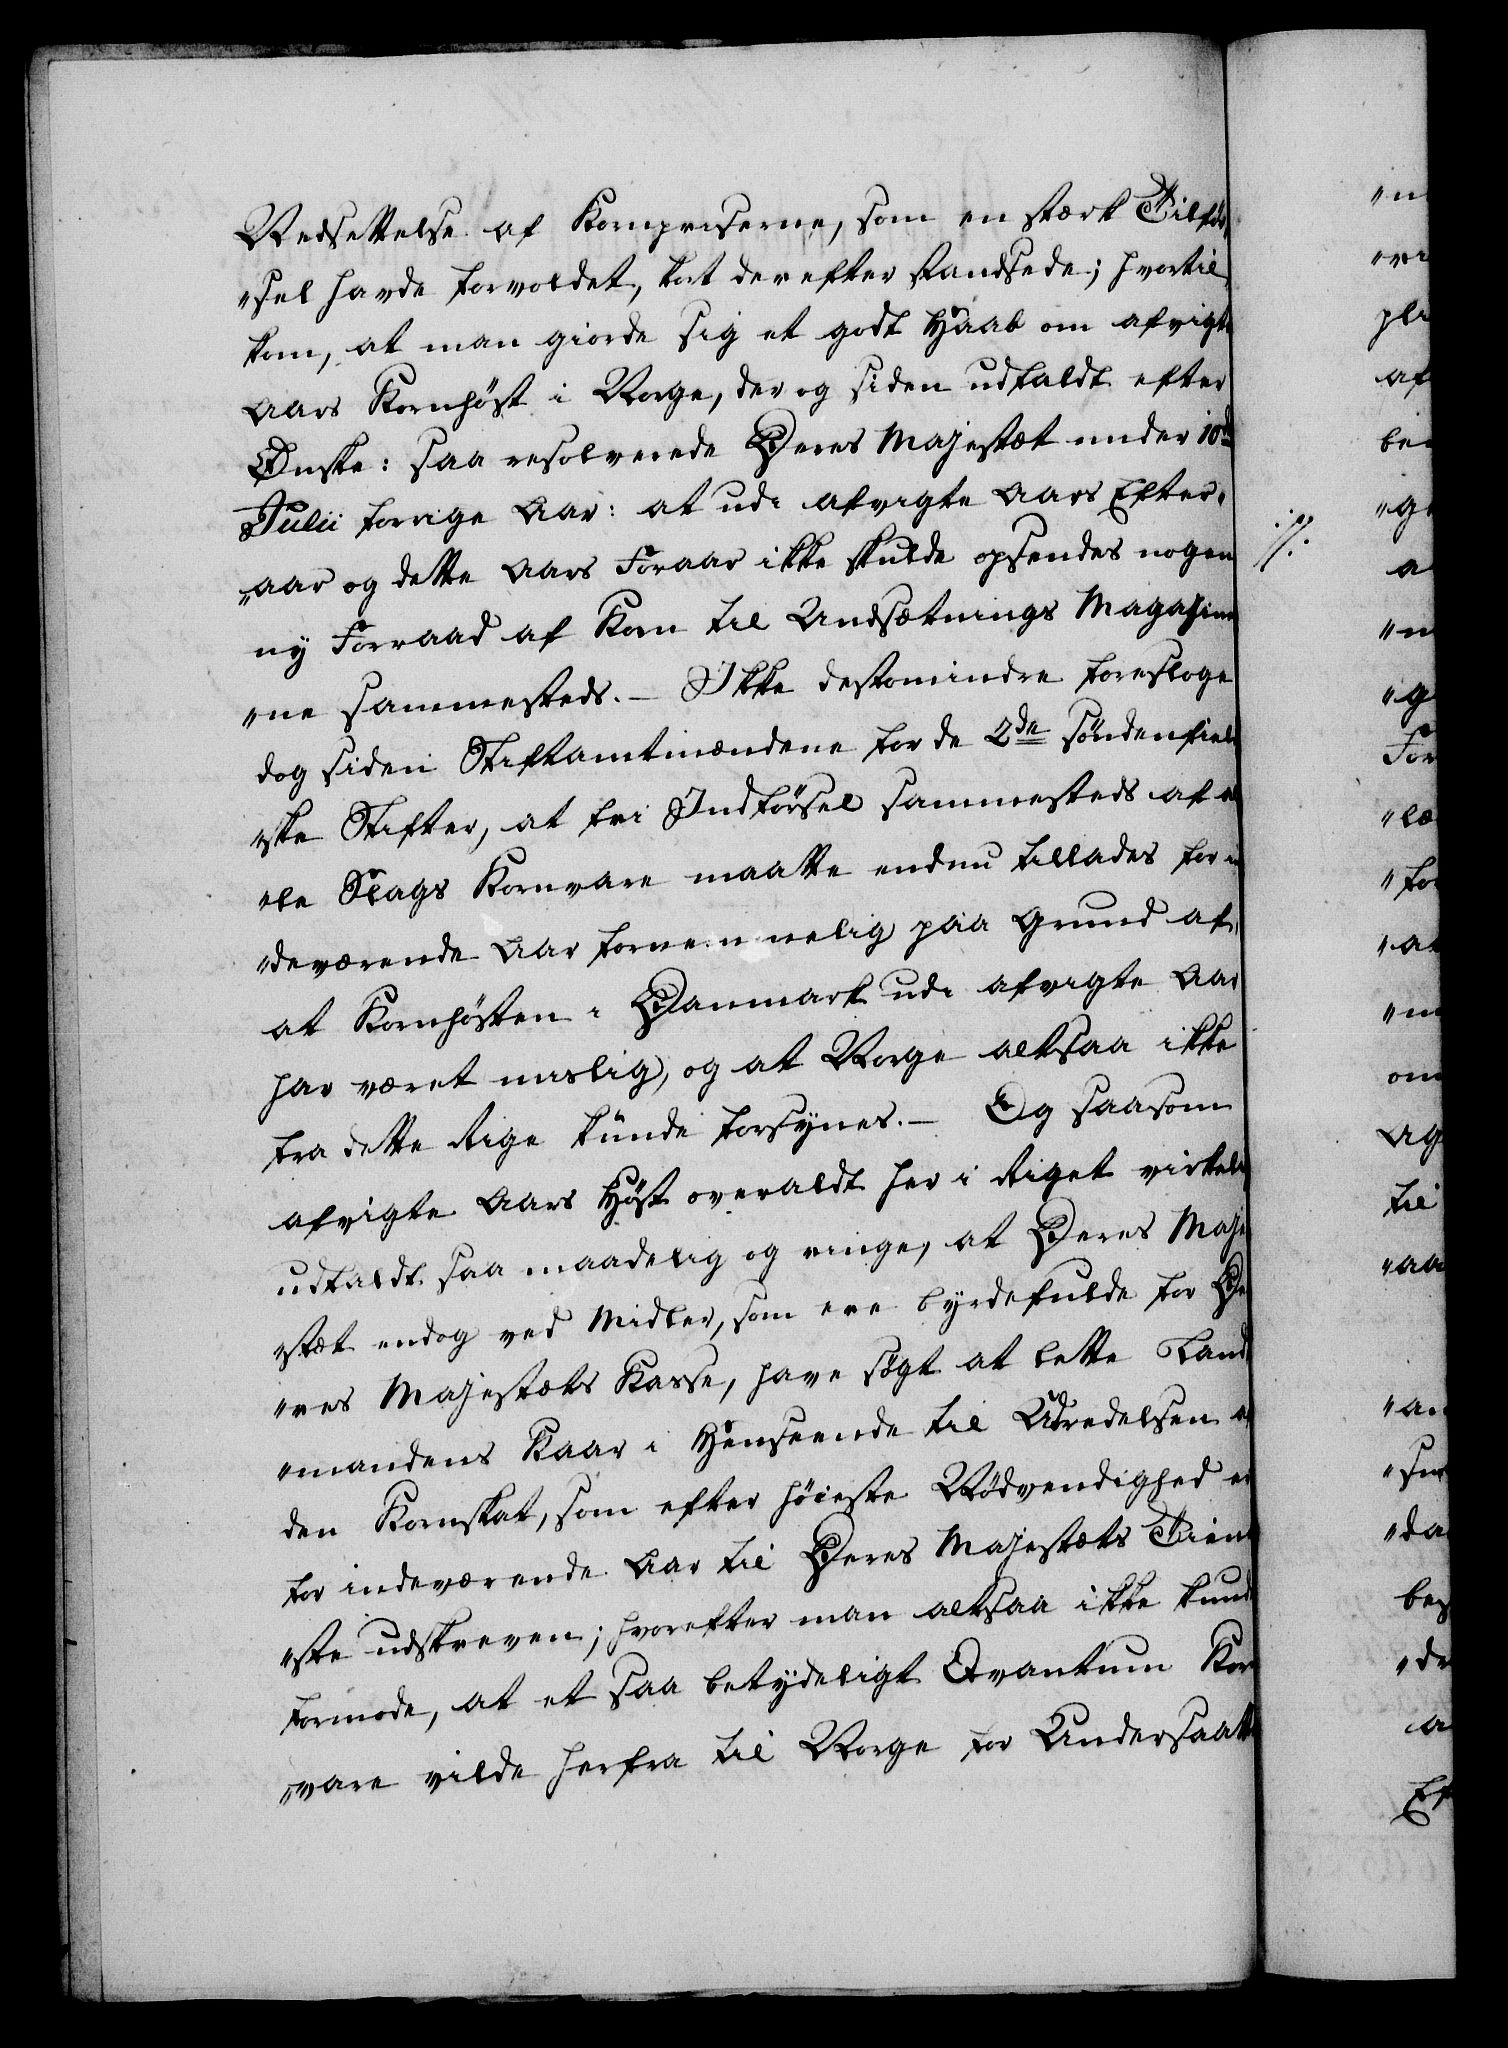 Nedsettelse af Kornpriserne, som en stærk Tilfør,
"sel havde forvoldet, kort derefter standsede; hvortil
kom, at man giorde sig et godt Haab om afvigte
Aars Kornhøst i Norge, der og siden udfaldt efter
Ønske: saa resolverede Deres Majestæt under 10de
Julii forrige Aar: at udi afvigte Aars Efter,
"aar og dette Aars Foraar ikke skulde opsendes nogen
ny Forraad af Korn til Undsætnings Magazine
"ne sammesteds. – Ikke destomindre foresloge
dog siden Stiftamtmændene for de 2de søndenfield
"ske Stifter, at fri Indførsel sammesteds af al
"le Slags Kornvare maatte endnu tillades for in
"deværende Aar fornemmelig paa Grund af,
at Kornhøsten i Danmark udi afvigte Aar
har været mislig, og at Norge altsaa ikke
fra dette Rige kunde forsynes. – Og saasom
afvigte Aars Høst overaldt her i Riget virkelig
udfaldt saa maadelig og ringe, at Deres Maje
"stæt endog ved Midler, som ere byrdefulde for De
"res Majestæts Kasse, have søgt at lette Land
"mandens Kaar i Henseende til Udredelsen af
den Kornskat, som efter høieste Nødvendighed er
for indeværende Aar til Deres Majestæts Tiene
"ste udskreven; hvorefter man altsaa ikke kunde
formode, at et saa betydeligt Qvantum Korn
"vare vilde herfra til Norge for Undersaatte